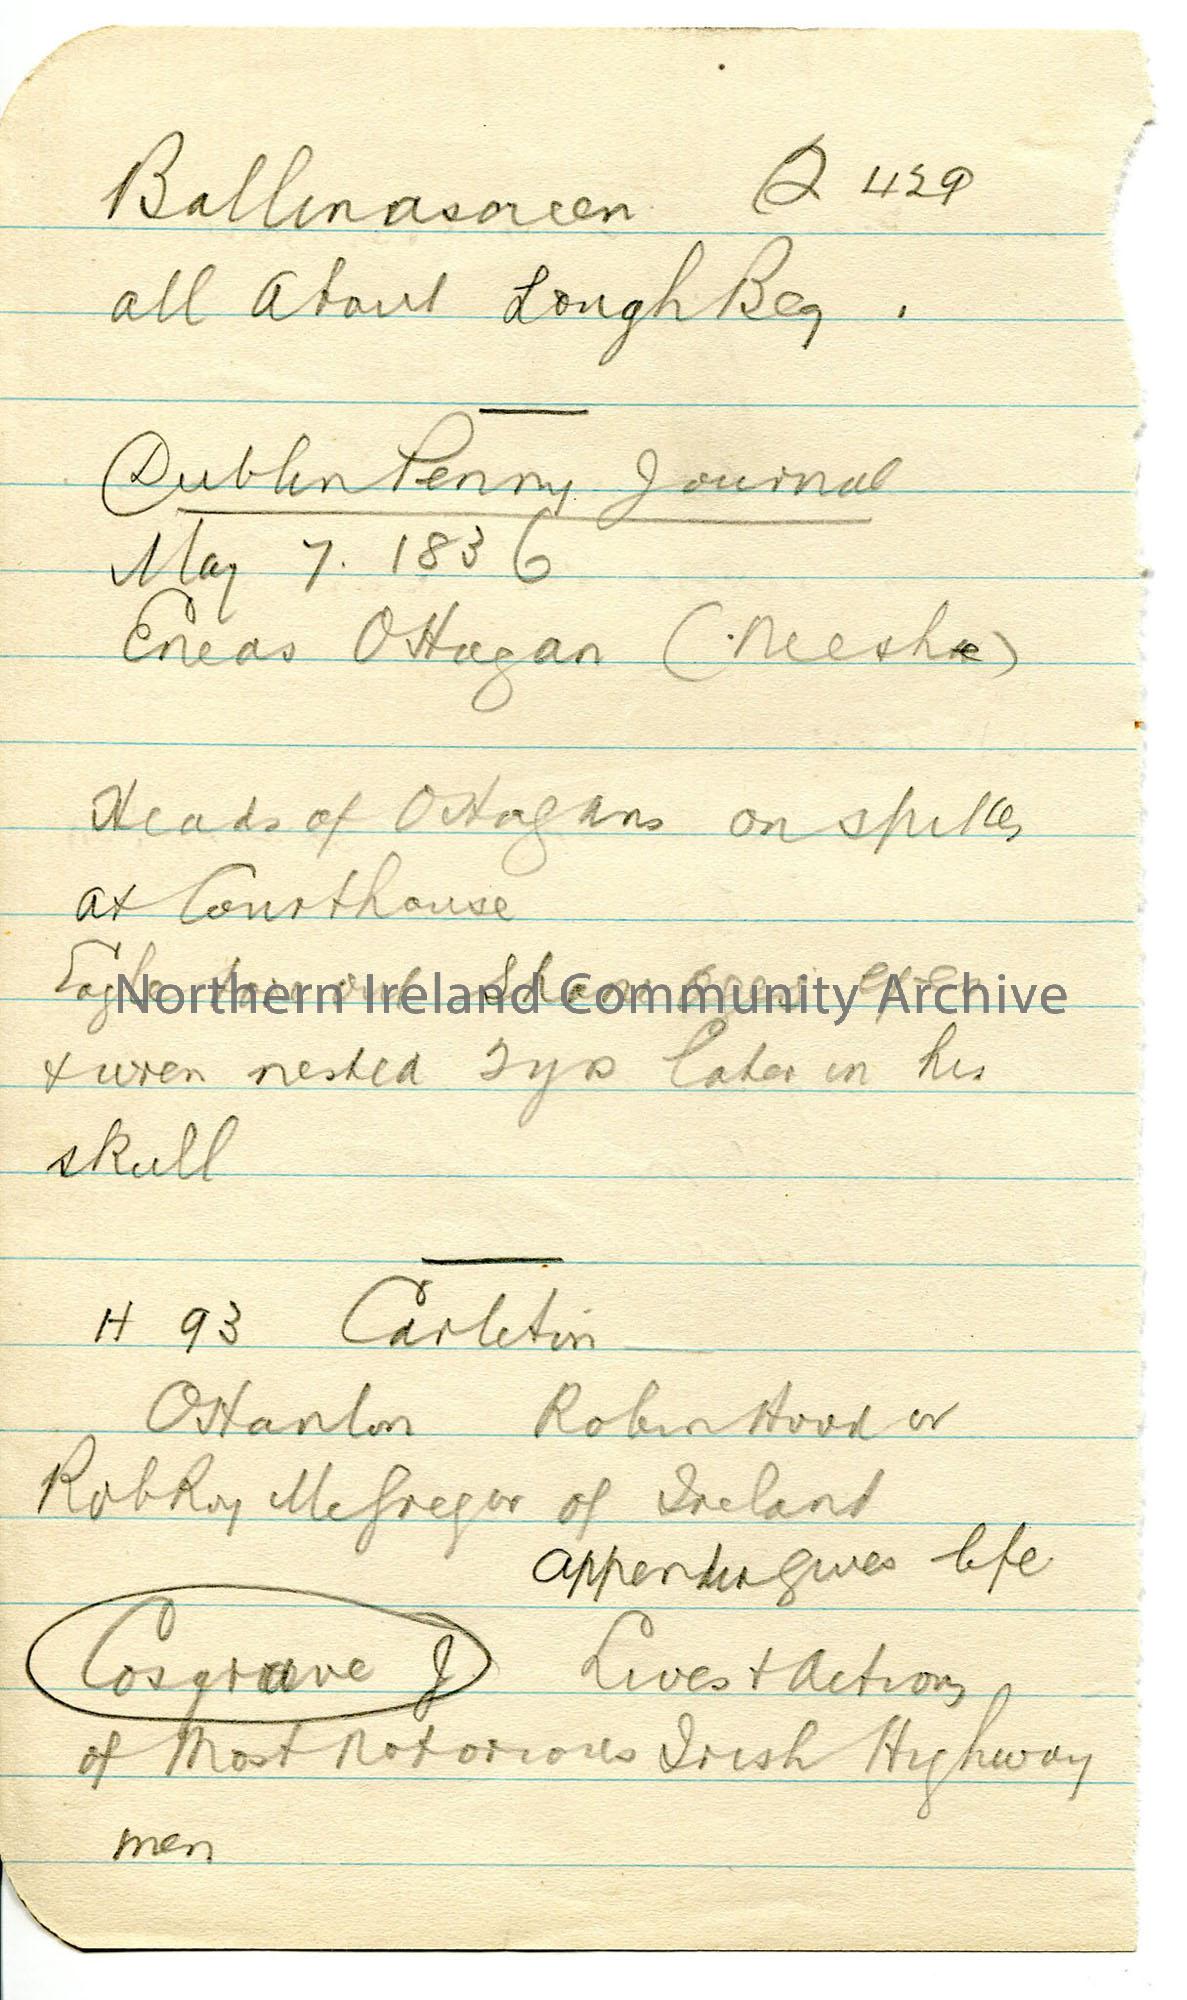 Ballinascreen Q 429
all about Lough Beg.
Dublin Penny Journal
May 7. 1836
Eneas OHagan (Neeshe)
Heads of OHagans on spikes
at Courthouse
Eagle tore out Shane eyes
Northern Ireland Community Archive
& wren nested 2 yrs later in his
skull
H 93 Carleton
OHanlon Robin Hood or
Rob Roy McGregor of Ireland
appendix gives life
Cosgrave J Lives & Actions
of Most Notorious Irish Highway
men